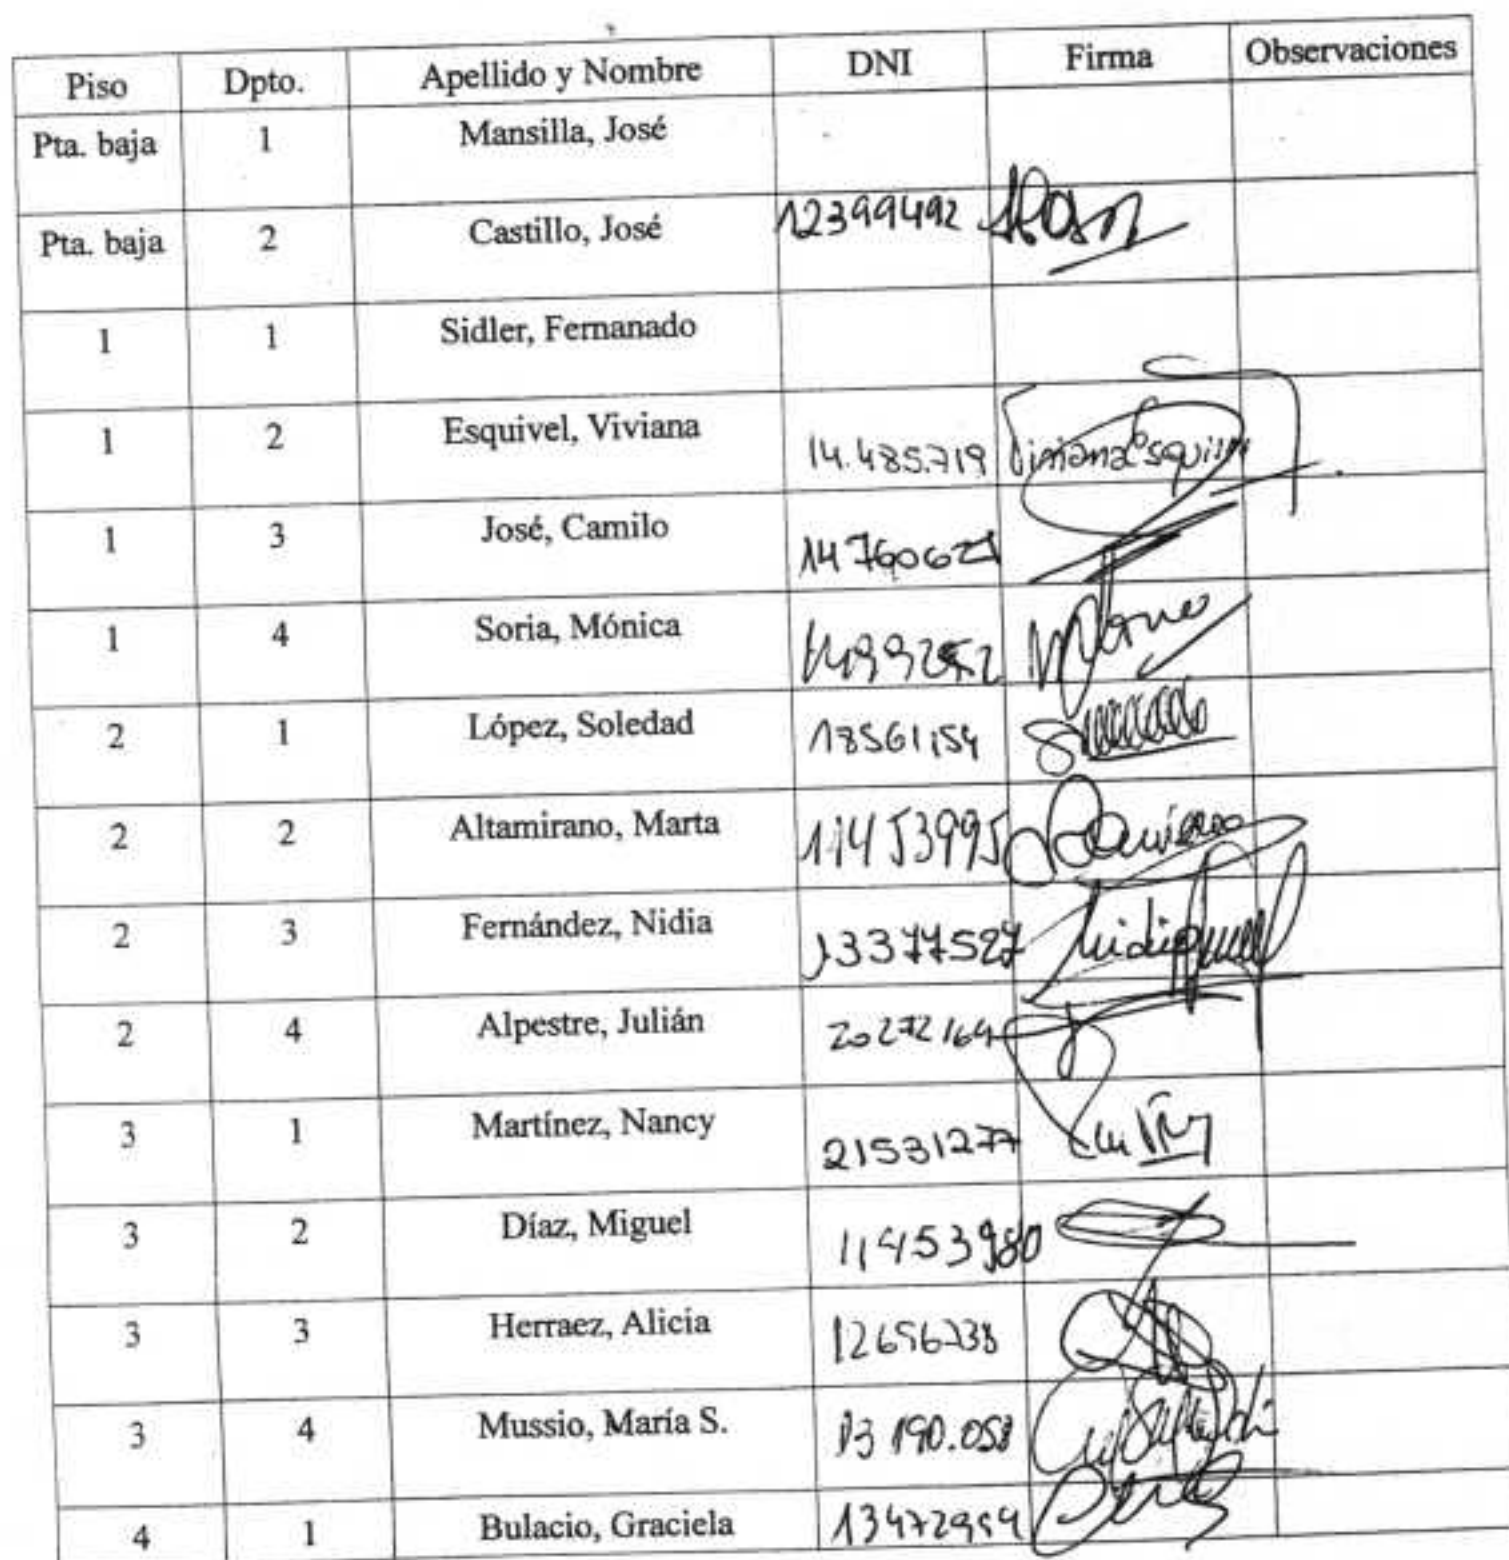 Piso Dpto. Apellido y Nombre DNI Firma Observaciones
Pta. baja 1 Mansilla, José
Pta. baja 2 Castillo, José 12399492
1 1 Sidler, Fernanado
1 2 Esquivel, Viviana 14.485.719
1 3 José, Camilo
1 4 Soria, Mónica
2 1 López, Soledad 18561154
2 2 Altamirano, Marta 11453995
2 3 Fernández, Nidia 13377527
2 4 Alpestre, Julián 20272164
3 1 Martínez, Nancy 21531277
3 2 Díaz, Miguel 11453980
3 3 Herraez, Alicia
3 4 Mussio, María S. 13190.058
4 1 Bulacio, Graciela